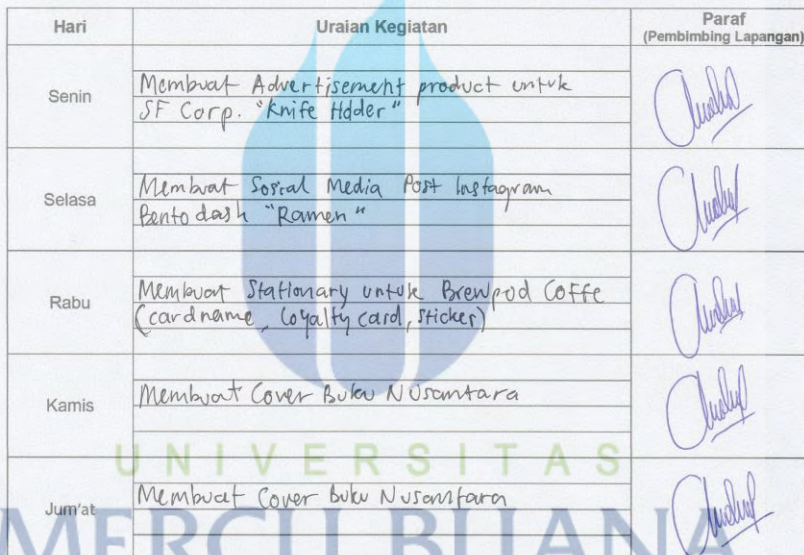 Hari Uraian Kegiatan Paraf
(Pembimbing Lapangan)
Senin
Membuat Advertisement product untuk
SF Corp. "Knife Holder"
Selasa
Membuat Sosial Media Post Instagram
Bento dash "Ramen"
Rabu
Membuat Stationary untuk Brewpod Coffe
(cardname, Loyalty card, sticker)
Kamis
Membuat Cover Buku Nusantara
UNIVERSITAS
Jum'at
Membuat Cover Buku Nusantara
MERCU BUANA